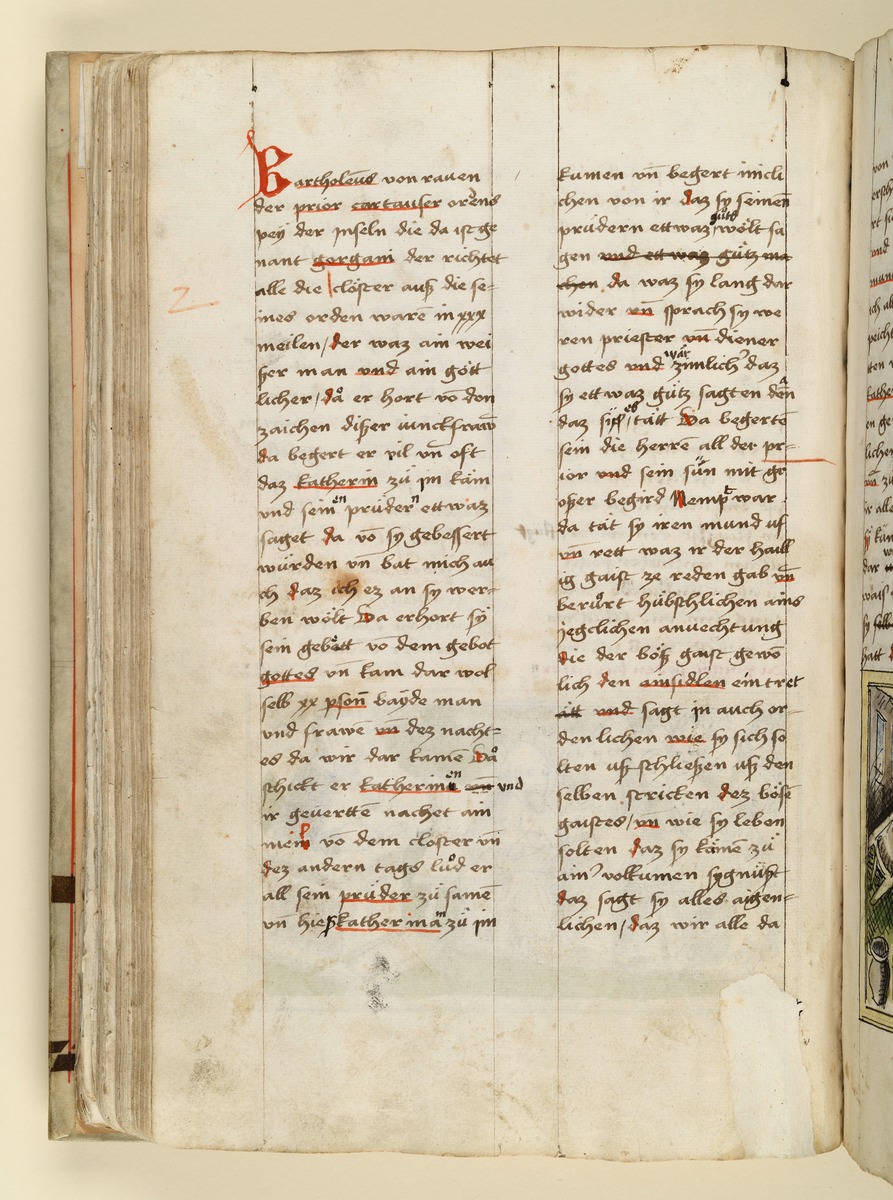 Bartholeus von rauen
der prior cartauser ordens
pey der Inseln die da ist ge
nant gorgani der richtet
alle die clöster auß die se-
ines orden waren in xxx
meilen / der waz ain wei
ßer man vnd ain gött
licher / da er hort von den
zaichen dißer iunckfrawn
da begert er vil vnd oft
daz katherin zů im käm
vnd seinen prüdern ettwaz
saget da von sy gebessert
würden vn bat mich au
ch daz ich ez an sy wer-
ben wölt Da erhort sy
sein gebett von dem gebot
gottes vn kam dar wol
selb xx pson bayde man
vnd frawen vn dez nacht-
es da wir dar kamen Da
schickt er katherinen vnd
ir geuertten nachet ain
meil von dem closter vn
dez andern tags lůd er
all sein prüder zů samen
vn hieß katherinam zů im
kumen vn begert inicli
chen von ir daz sy seinen
prüdern ettwaz gůtz wölt sa
gen vnd ett waz gůtz ma
chen da waz sy lang dar
wider vn sprach sy we
ren priester vn diener
gottes vnd wär zimlicher daz
sy ettwaz gůtz sagten denn
daz sy es tätt Da begerten
sein die herren all der pr-
ior vnd sein sün mit gr
oßer begird Nempt war
da tät sy iren mund uf
vn rett waz ir der haill
ig gaist ze reden gab vn
berůrt hübschlichen ains
jegclichen anuechtung
die der böß gaist gewon
lich den ainsidlen ein tret
ätt vnd sagt in auch or-
denlichen wie sy sich so
lten uß schließen uß den
selben stricken dez bösen
gaistes / vn wie sy leben
solten daz sy kämen zů
ainer vollkumen sygnüft
daz sagt sy alles aigen-
lichen / daz wir alle da